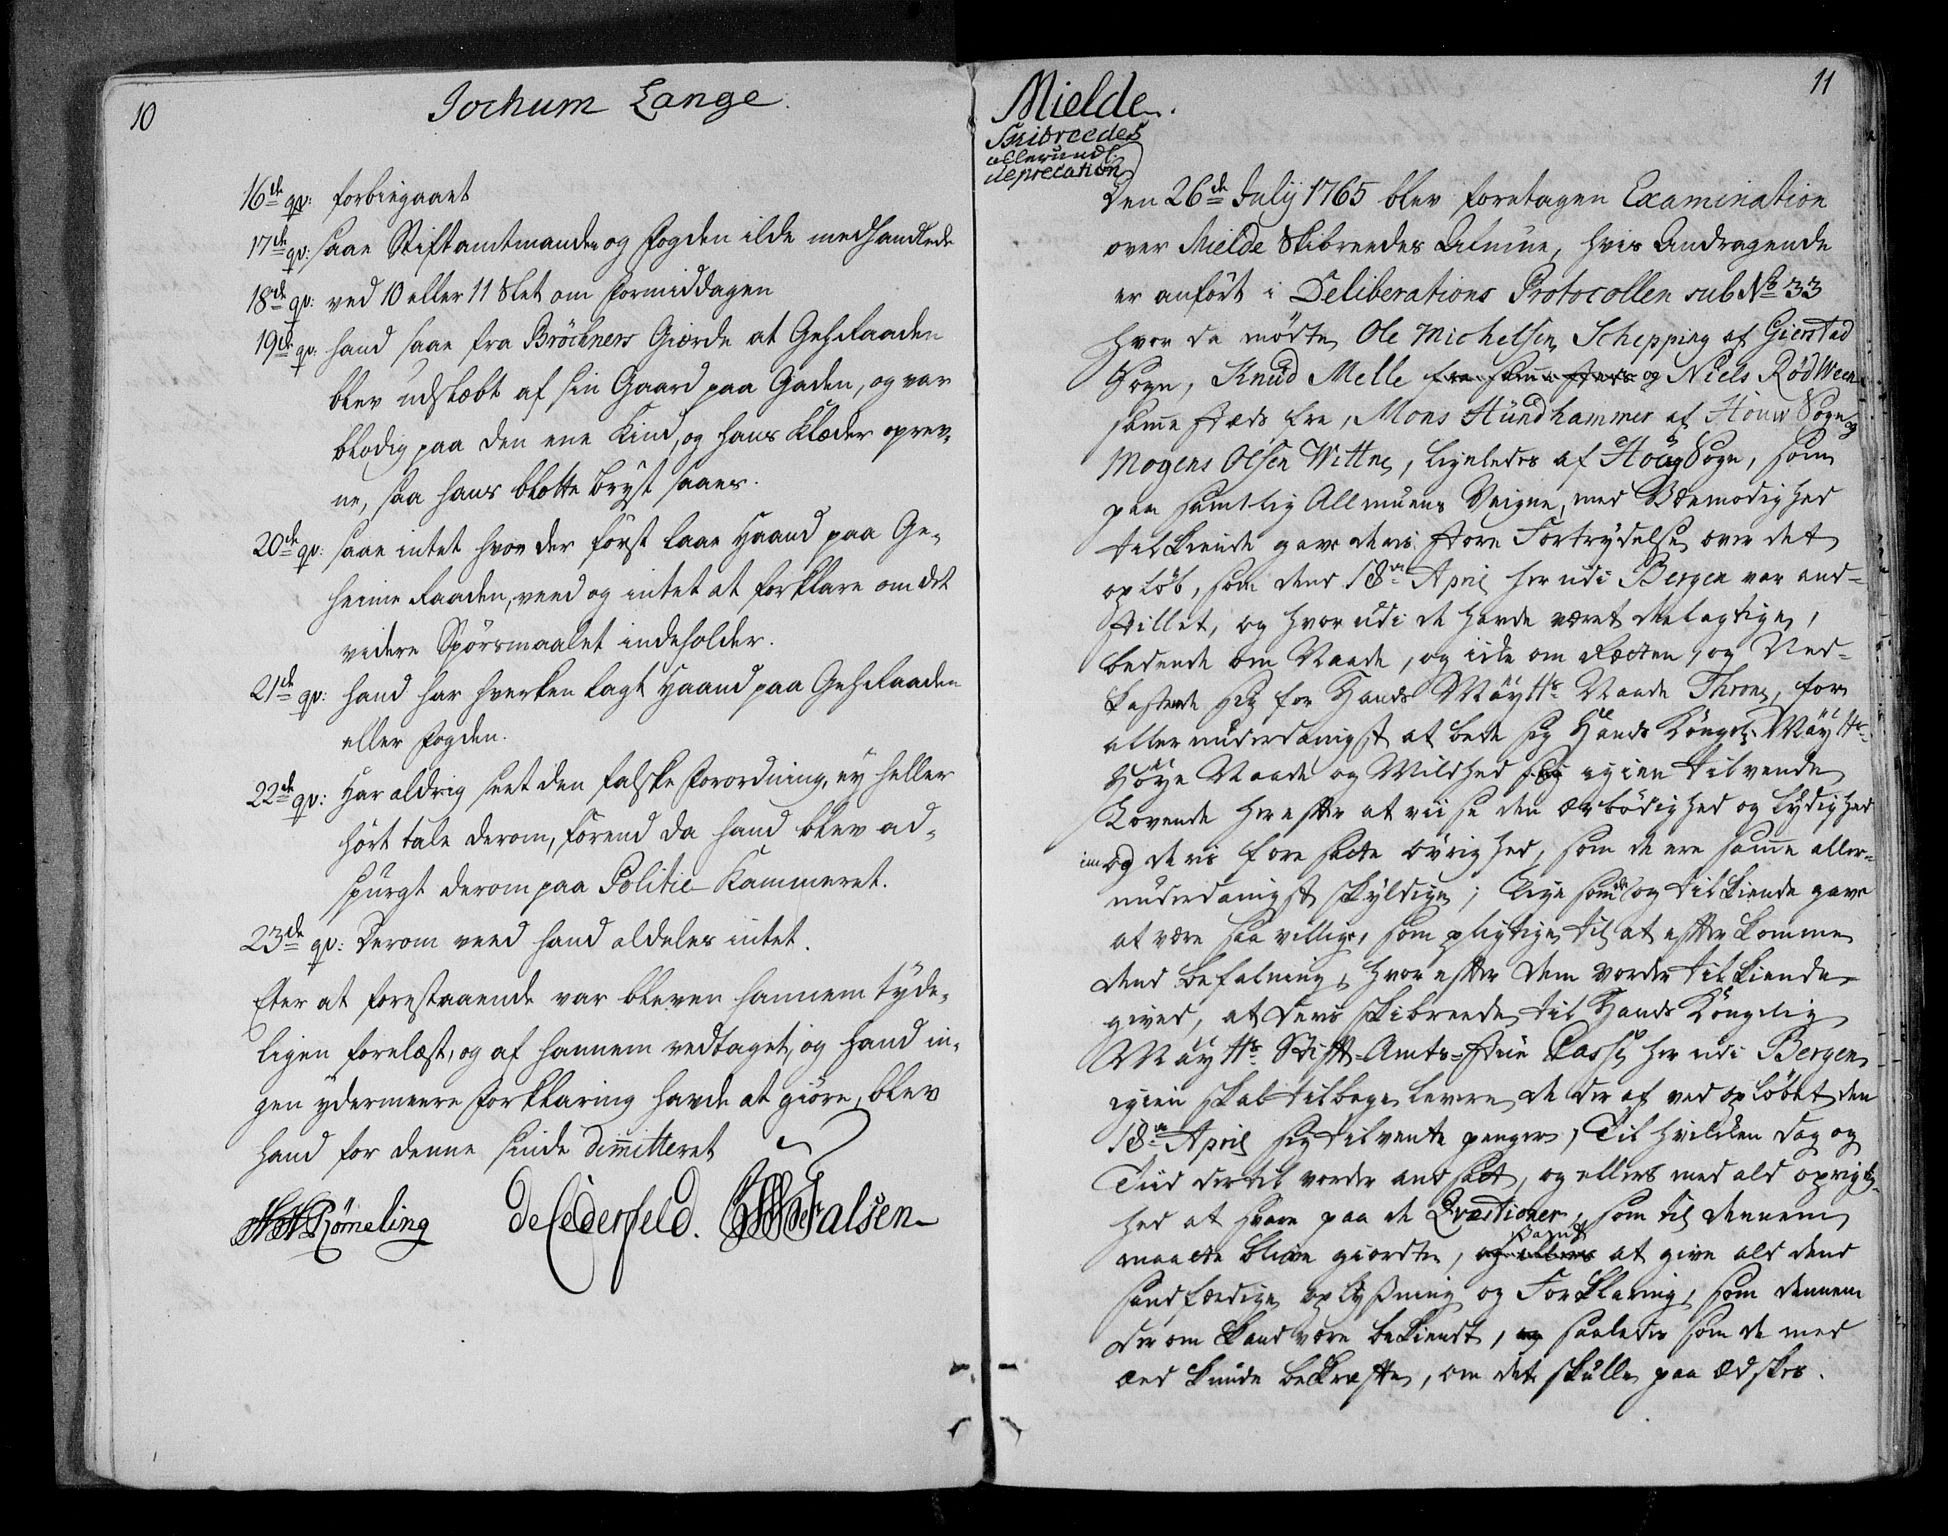 10
Jochum Lange.
16de qv: forbiegaaet
17de qv: saae Stiftamtmanden og Fogden ilde medhandlede
18de qv: ved 10 eller 11 Slet om Formiddagen
19de qv: hand saae fra Bröchners Giærde at Gehr.aaden
blev udslæbt af sin Gaard paa Gaden, og var
blodig paa den ene Kind, og hans Klæder oprev-
ne, saa hans blotte bryst saaes.
20de qv: saae intet hvor der först laae Haand paa Ge-
heime Raaden, veed og intet at forklare om det
videre Spörsmaalet indeholder.
21de qv: hand har hverken lagt Haand paa Gehraaden
eller Fogden.
22de qv: Har aldrig seet den falske Forordning, ey heller
hört tale derom, förend da hand blev ad-
spurgt derom paa Politie-Kammeret.
23de qv: Derom veed hand aldeles intet.
Eter at forestaaende var bleven hannem tyde-
ligen forelæst, og af hannem vedtaget, og hand in-
gen ydermeere Forklaring havde at giöre, blev
hand for denne sinde dimitteret
Römeling de Cederfeld. Falsen
11
Mielde
Skibreedes
allerund:
deprecation
Den 26de July 1765 blev foretagen Examination
over Mielde Skibreedes Almue, hvis Andragende
er anfört i Deliberations Protocollen sub No 33
hvor da mödte Ole Michelsen Schepping af Gierstad
Sogn, Knud Melle fra samme stæds og Niels Röd Ween
samme stæds fra, Mons Hundhammer af Houw Sogn og
Mogens Olsen Wittne, ligeledes af Houg Sogn, som
paa samtlig Allmuens Veigne, med Veemodighed
tilkiende gave deris store Fortrydelse over det
oplöb, som dend 18de April her udi Bergen var and-
stillet, og hvor udi de havde været deelagtige,
bedende om Naade, og icke om Rætten, og Ned-
kastende sig for Hands Mayts Naade Throne, for
allerunderdanigst at bede sig Hands Kongel. Mayts
Höye Naade og Mildhed sig igien tilvende
Lovende herefter at viise den ærbödighed og lydighed
imod deris foresatte övrighed, som de ere samme aller-
underdanigst skyldige; Ligesom de og tilkiende gave
at være saa villige, som pligtige til at efterkomme
dend befalning, hvorefter dem vorder tilkiende-
gived, at deris skibreede til Hands Kongelig
Mayts Stift-Amts-stue Casse her udi Bergen
igien skal tilbage levere de der af ved oplöbet den
18de April sig tilvente penger, Til hvilcken dag og
Tiid dertil vorder andsat, og ellers med ald oprigtig-
hed at svare paa de Qvæstioner, som til dennem
maatte blive giordte, og ellers samt at give ald dend
sandfærdige oplysning og Forklaring, som dennem
derom kand være bekiendt, og saaledes som de med
Eed kunde bekræfte, om det skulle paa ædskes.